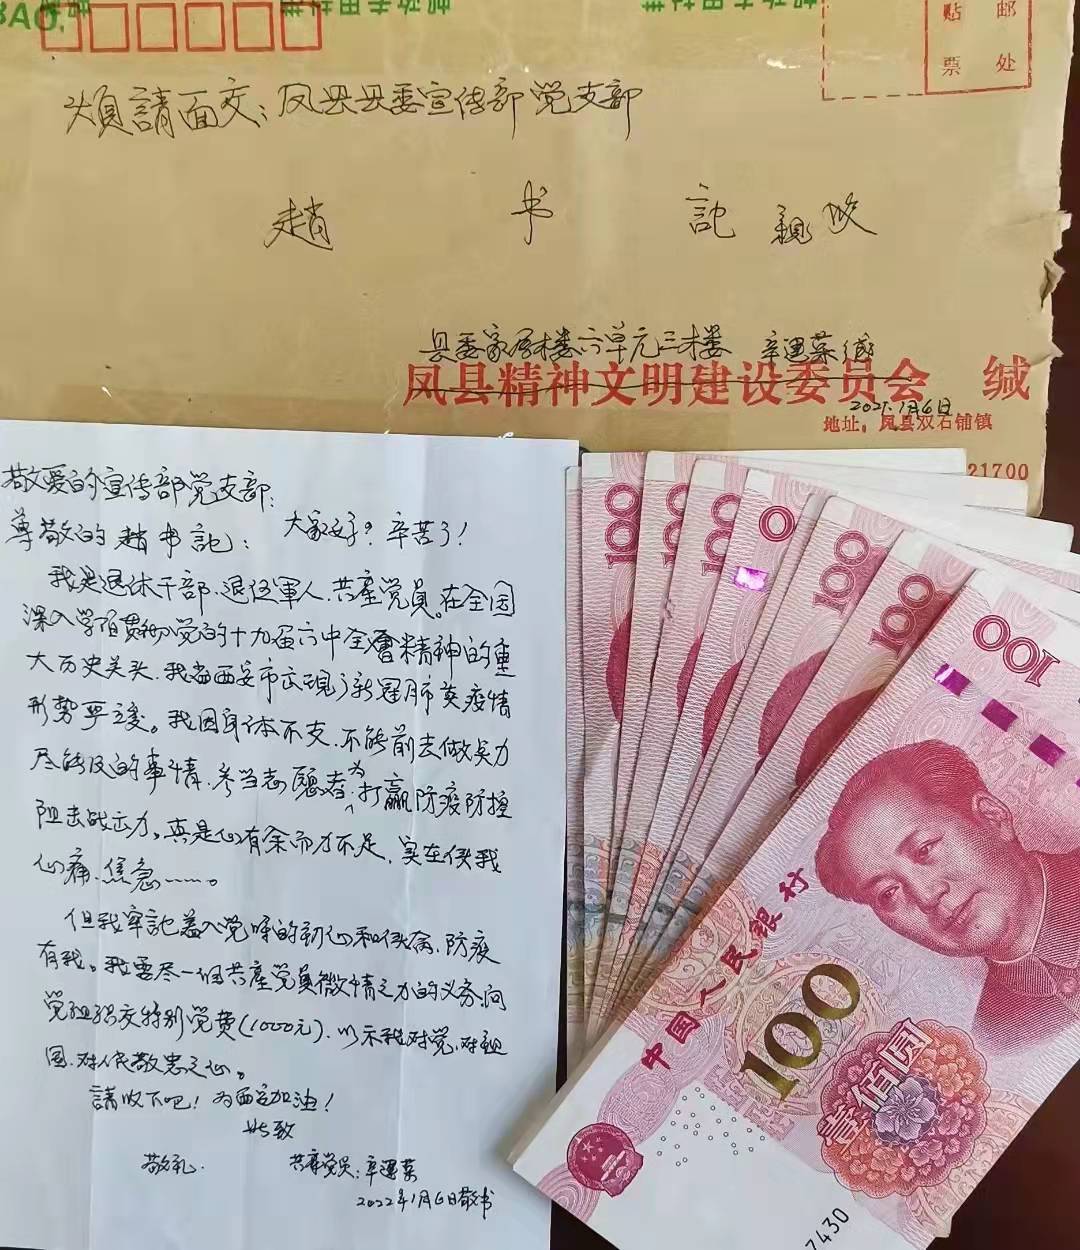 贴 邮
票 处
煩請面交：凤县县委宣传部党支部
趙 书 記 親收
县委家属楼六单元三楼 辛運菜 緘
凤县精神文明建设委员会 缄
1月6日
地址：凤县双石铺镇
21700
敬爱的宣传部党支部：
尊敬的趙书記： 大家好？辛苦了！
我是退休干部、退伍軍人、共產党员。在全国
深入学習貫彻党的十九届六中全會精神的重
大历史关头，我省西安市出现了新冠肺炎疫情
形势严峻。我因身体不支，不能前去做矣力
尽能及的事情，参当志愿者，为打赢防疫防控
阻击战出力。真是心有余而力不足，实在使我
心痛、焦急……。
但我牢記着入党时的初心和使命，防疫
有我。我要尽一個共產党员微情之力的义务，向
党组织交特别党费（1000元），以示我对党、对祖
国、对人民敬忠之心。
請收下吧！为西安加油！
此致
敬礼
共產党员：辛運菜
2022年1月6日敬书
100
100
100
0
100
100
100
中国人民银行
100
壹佰圆
7430